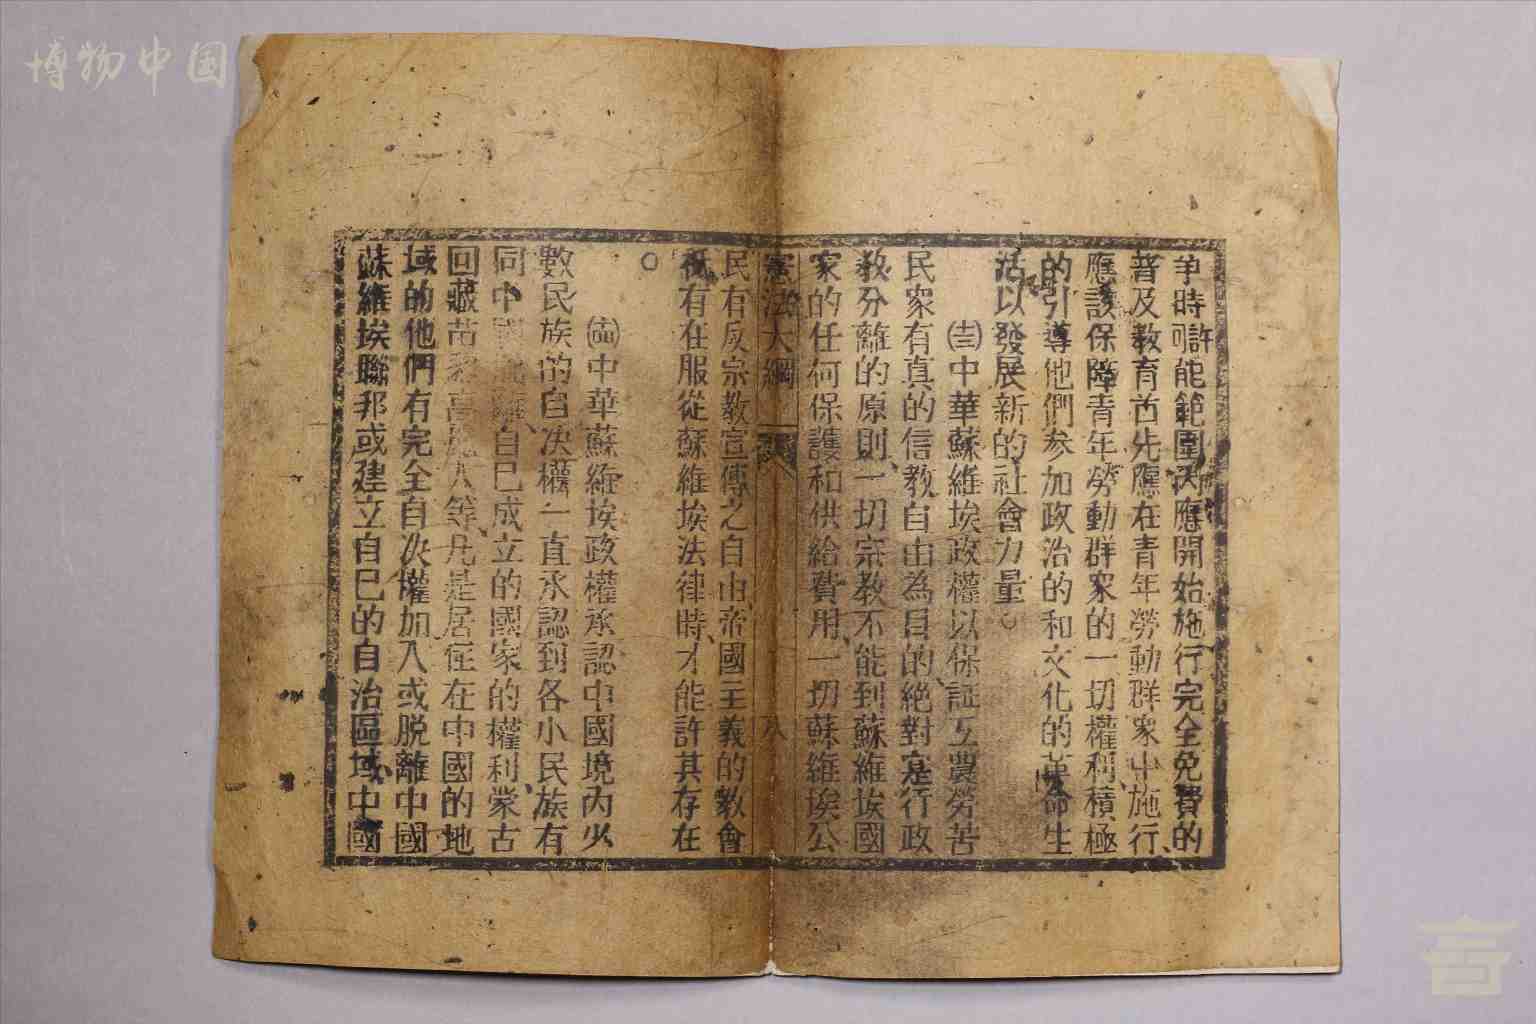 博物中国
爭時許可能範圍內應開始施行完全免費的
普及教育首先應在青年勞動群眾中施行、
應該保障青年勞動群眾的一切權利積極
的引導他們參加政治的和文化的革命生
活以發展新的社會力量○
㈩㊂中華蘇維埃政權以保証工農勞苦
民眾有真的信教自由為目的、絕對實行政
教分離的原則、一切宗教不能到蘇維埃國
家的任何保護和供給費用、一切蘇維埃公
憲法大綱
八
民有反宗教宣傳之自由、帝國主義的教會
祇有在服從蘇維埃法律時、才能許其存在
○
中華蘇維埃政權承認中國境內少
數民族的自决權、一直承認到各小民族有
同中國脫離、自己成立的國家的權利、蒙古
回藏苗黎高麗人等、凡是居住在中國的地
域的他們有完全自决權加入或脫離中國
蘇維埃聯邦或建立自己的自治區域、中國